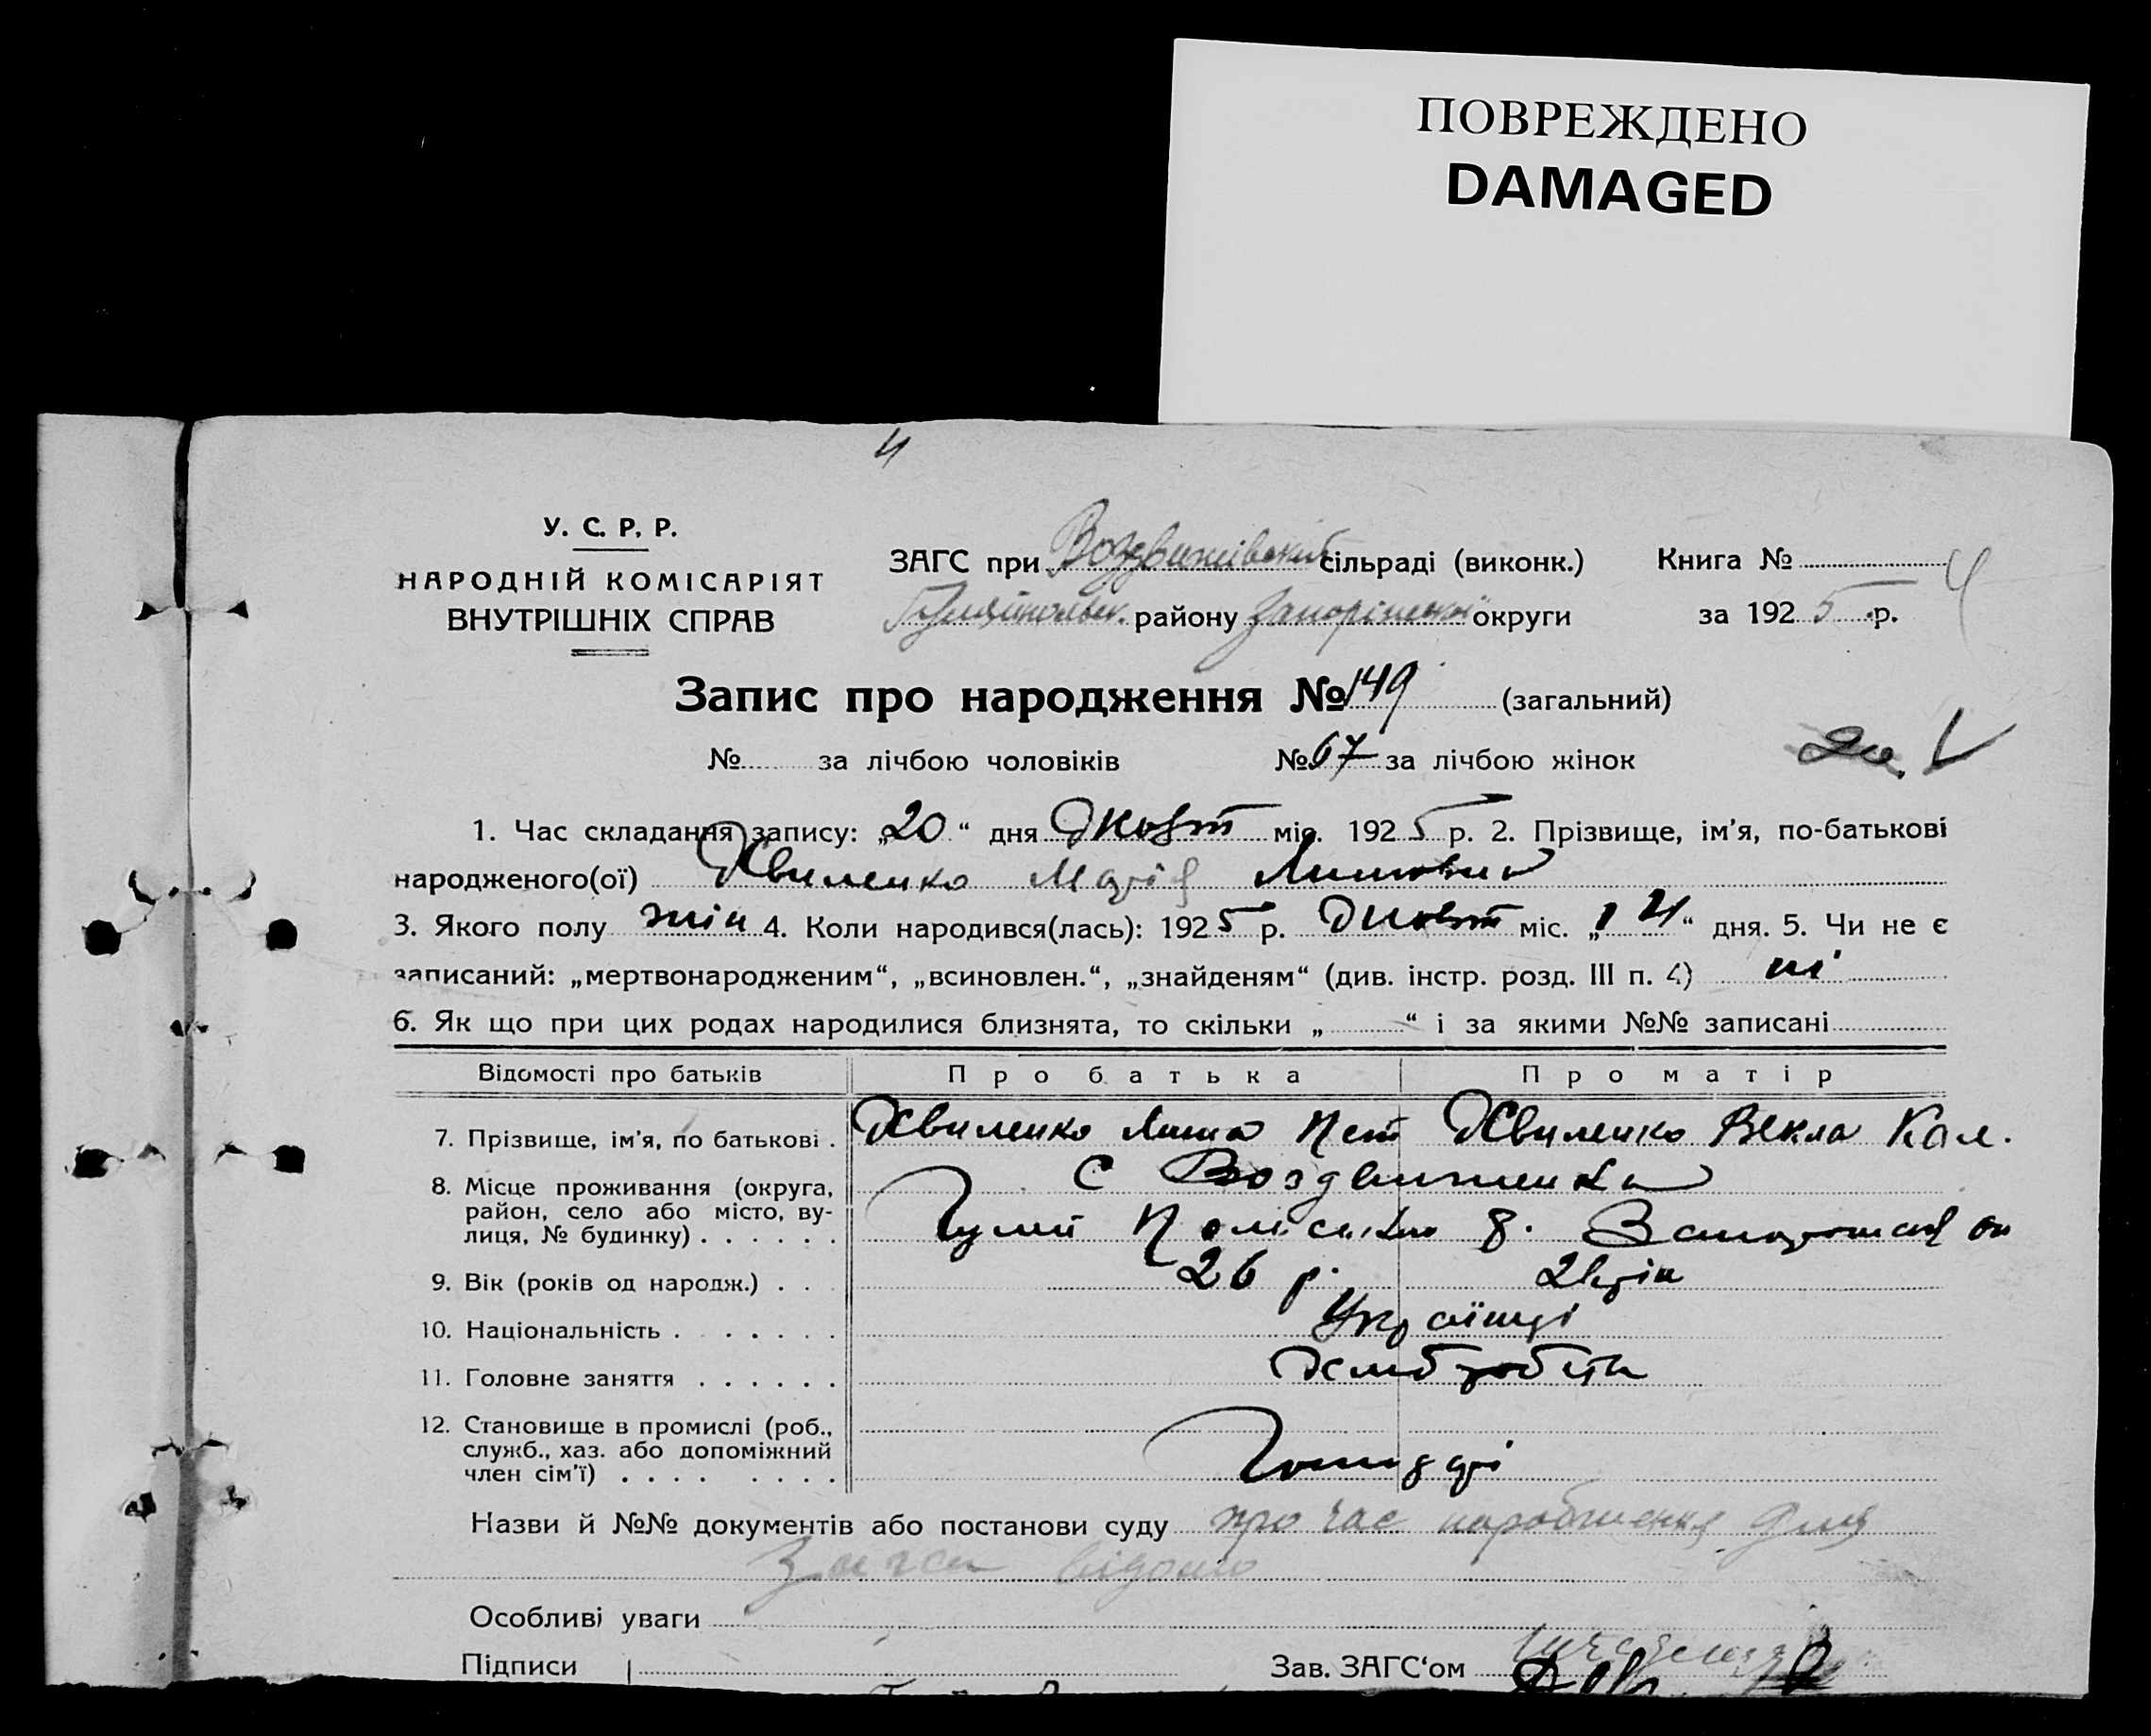 ПОВРЕЖДЕНО
DAMAGED
4
У. С. Р. Р.
НАРОДНІЙ КОМІСАРІЯТ
ВНУТРІШНІХ СПРАВ
ЗАГС при Воздвижівській сільраді (виконк.)
району Запоріжської округи
Книга № 4
за 1925 р.
Запис про народження № 149 (загальний)
№ за лічбою чоловіків № 67 за лічбою жінок
1. Час складання запису: „20“ дня Жовт міс. 1925 р. 2. Прізвище, ім’я, по-батькові
народженого(ої) Хвиленко Марія
3. Якого полу жін 4. Коли народився(лась): 1925 р. Жовт міс. „14“ дня. 5. Чи не є
записаний: „мертвонародженим“, „всиновлен.“, „знайденям“ (див. інстр. розд. III п. 4) ні
6. Як що при цих родах народилися близнята, то скільки „ “ і за якими №№ записані
Відомості про батьків Про батька Про матір
7. Прізвище, ім’я, по батькові . Хвиленко Пет Хвиленко Векла Кал.
8. Місце проживання (округа, район, село або місто, вулиця, № будинку) . . . . . . с Воздвиженка
Гуляй р. ок
9. Вік (років од народж.) . . . 26 р.
10. Національність . . . . . . . Українці
11. Головне заняття . . . . . . Хліборобств
12. Становище в промислі (роб., служб., хаз. або допоміжний член сім’ї) . . . . . . . . Господарі
Назви й №№ документів або постанови суду про час народження для
Загса відомо
Особливі уваги
Підписи Зав. ЗАГС‘ом